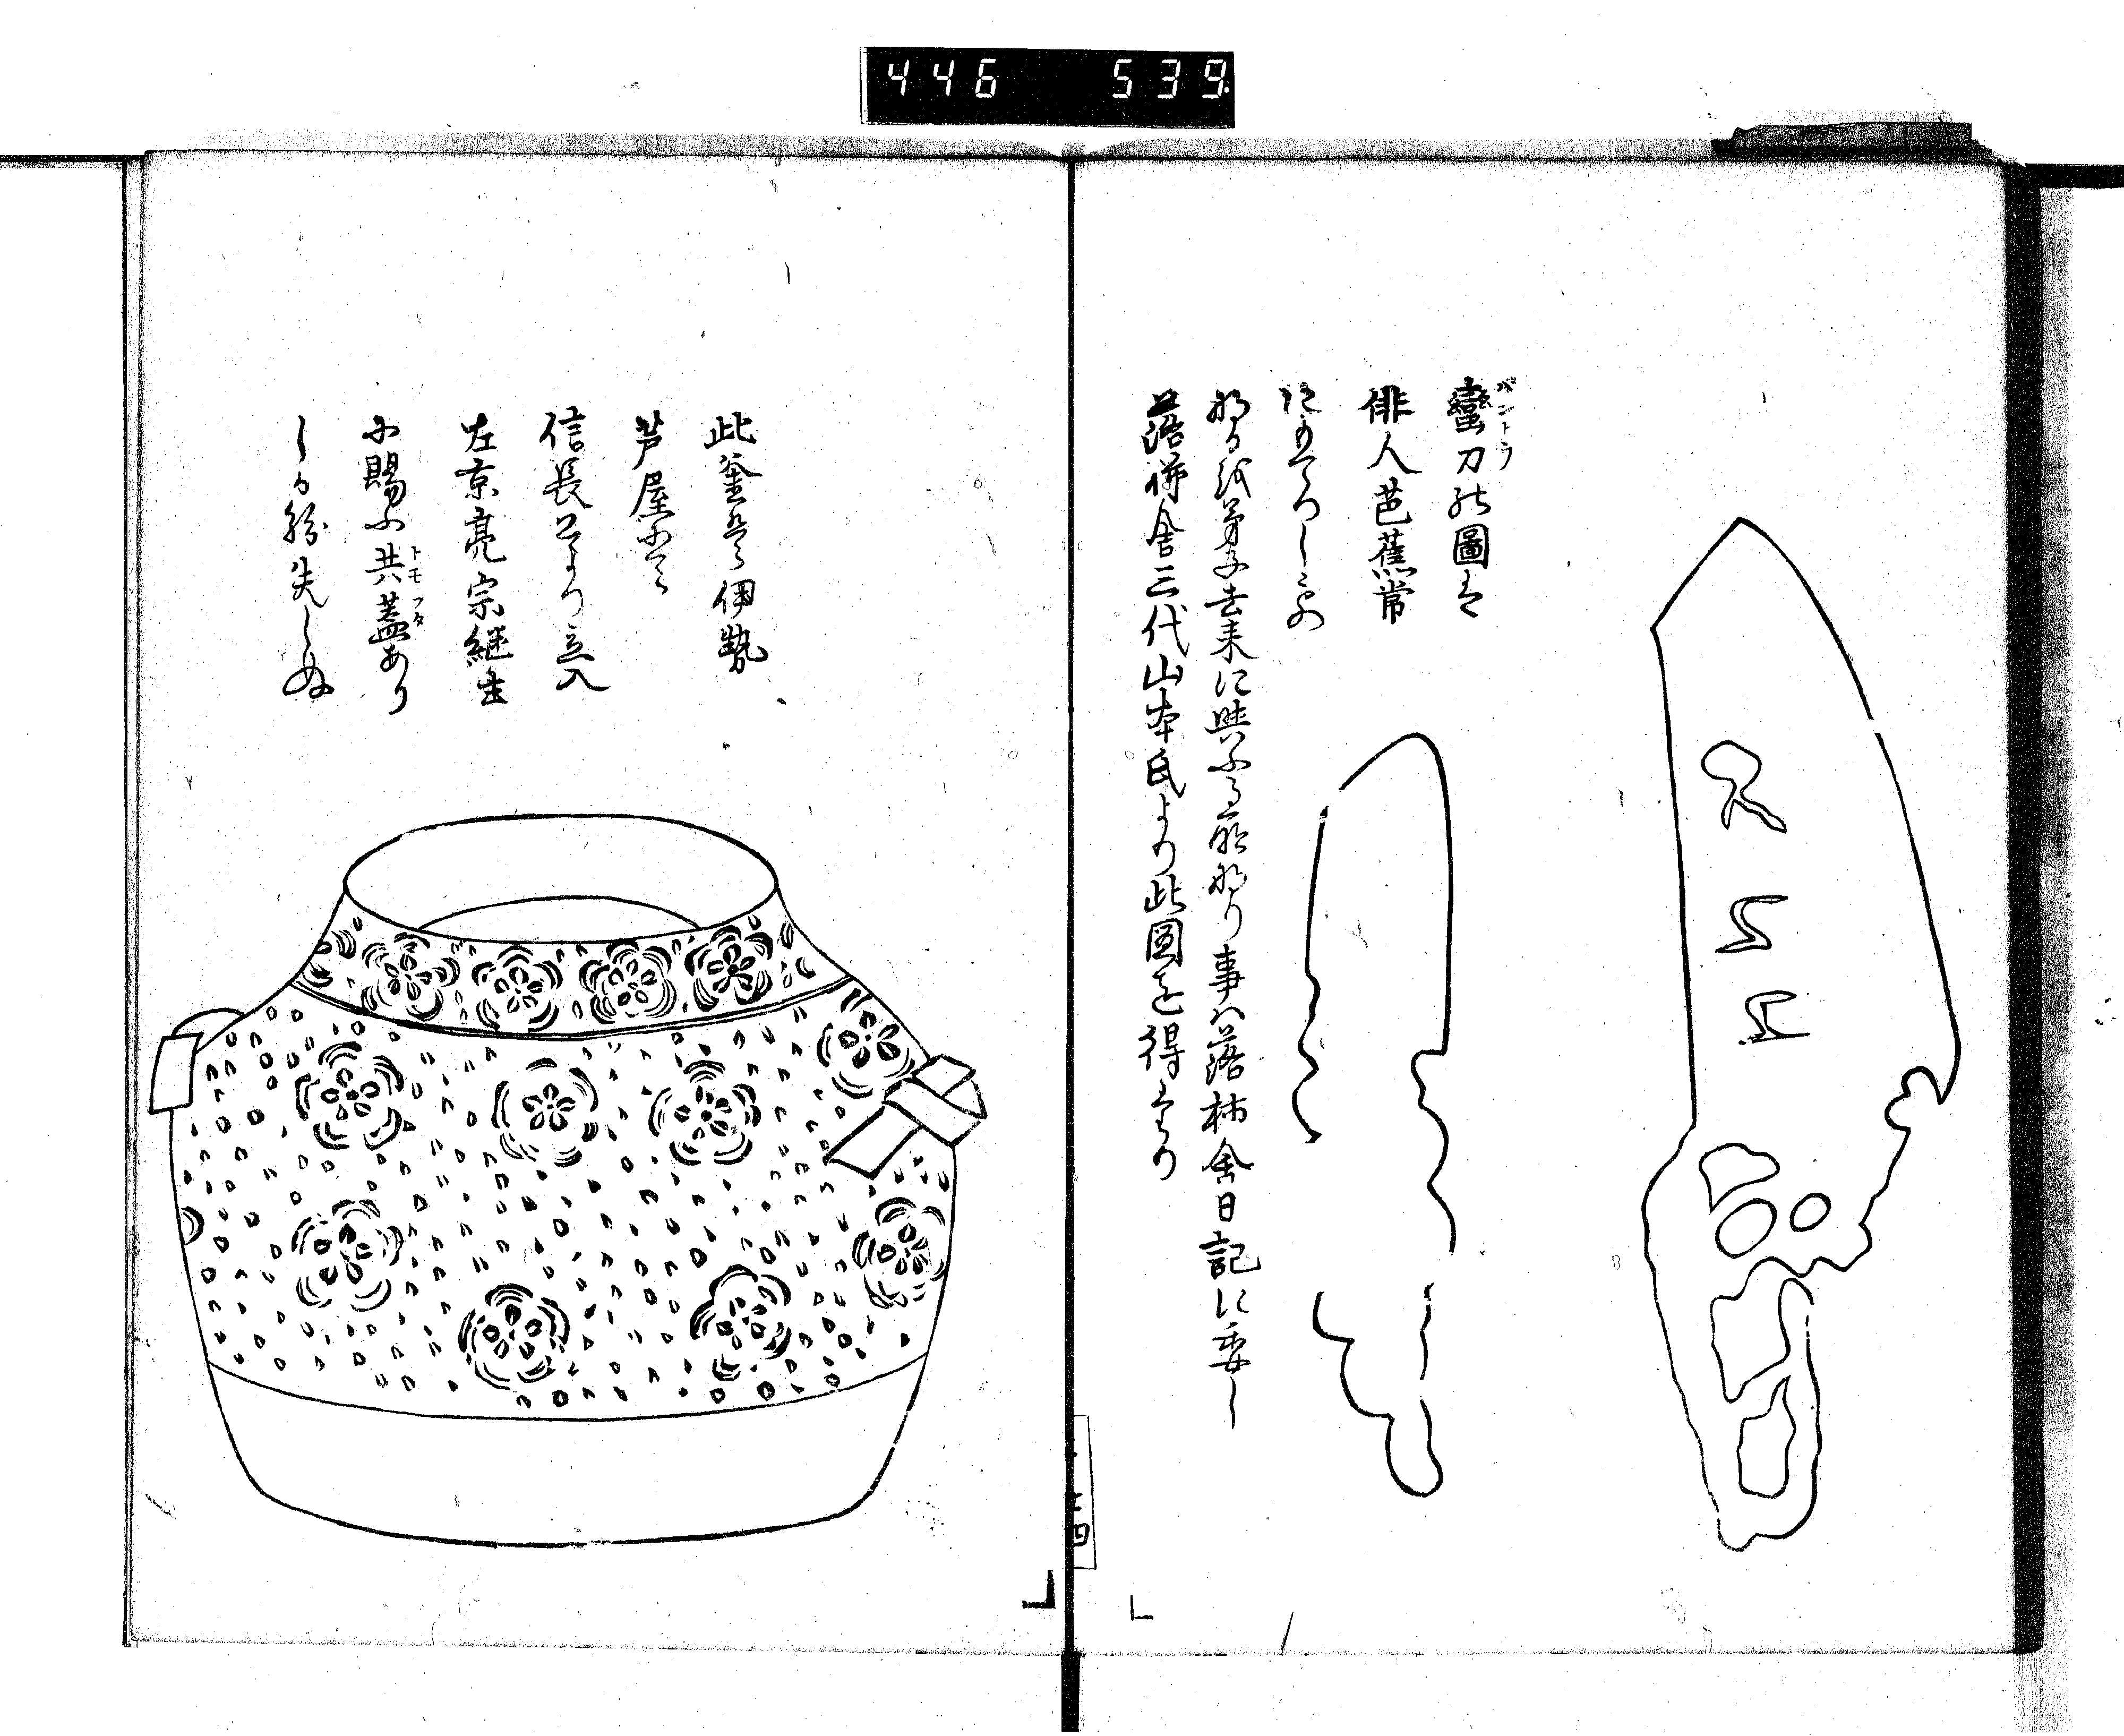 446 539
蠻刀の圖は
バントウ
俳人芭蕉常
に
なるを弟子去来に與ふる所なり事ハ落柿舎日記に委し
落柿舎三代山本氏より此圖を得たり
此釜は伊勢
芦屋にて
信長公より立入
左京亮宗継
に賜ふ共蓋あり
トモブタ
しか紛失しぬ